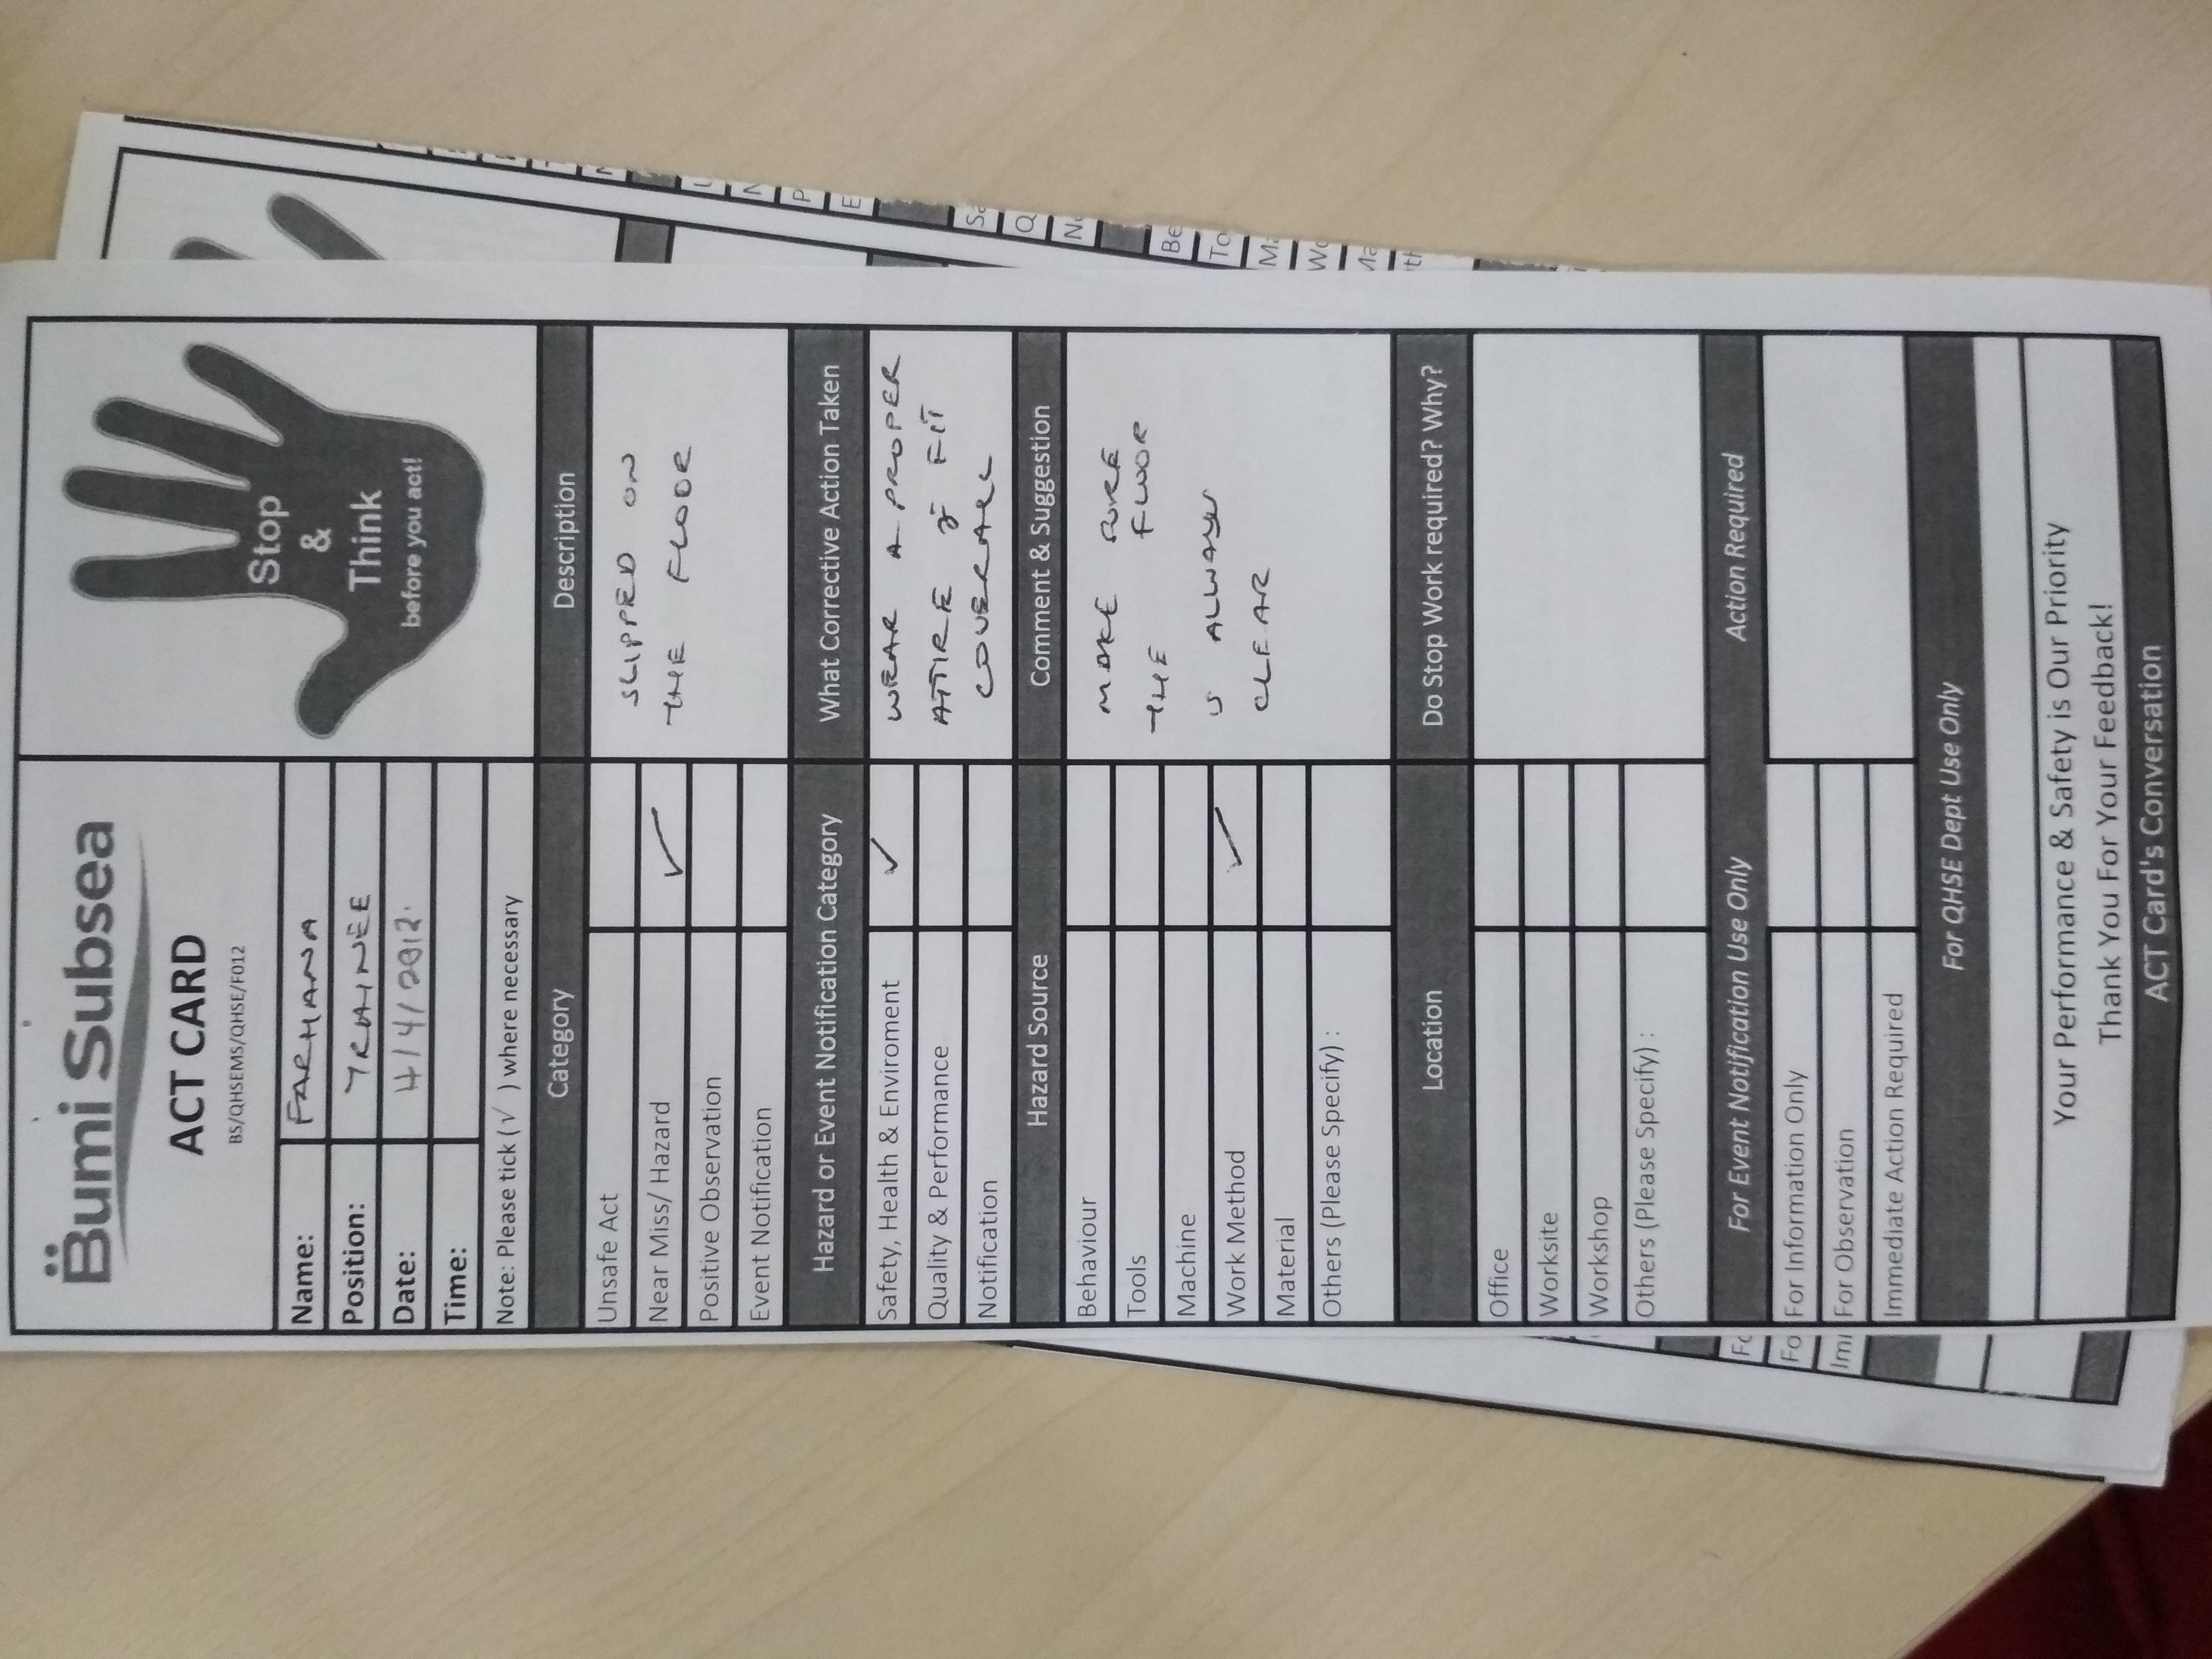 Bumi Subsea
ACT CARD
BS/QHSEMS/QHSE/F012
Stop
&
Think
before you act!
Name: FARHANA
Position: TRAINEE
Date: 4/4/2012.
Time:
Note: Please tick (√ ) where necessary
Category Description
Unsafe Act SLIPPED ON
Near Miss/ Hazard ✓ THE FLOOR
Positive Observation
Event Notification
Hazard or Event Notification Category What Corrective Action Taken
Safety, Health & Enviroment ✓ WEAR A PROPER
Quality & Performance ATTIRE & FIT
Notification COVERALL
Hazard Source Comment & Suggestion
Behaviour MAKE SURE
Tools THE FLOOR
Machine IS ALWAYS
Work Method ✓ CLEAR
Material
Others (Please Specify) :
Location Do Stop Work required? Why?
Office
Worksite
Workshop
Others (Please Specify) :
For Event Notification Use Only Action Required
For Information Only
For Observation
Immediate Action Required
For QHSE Dept Use Only
Your Performance & Safety is Our Priority
Thank You For Your Feedback!
ACT Card's Conversation